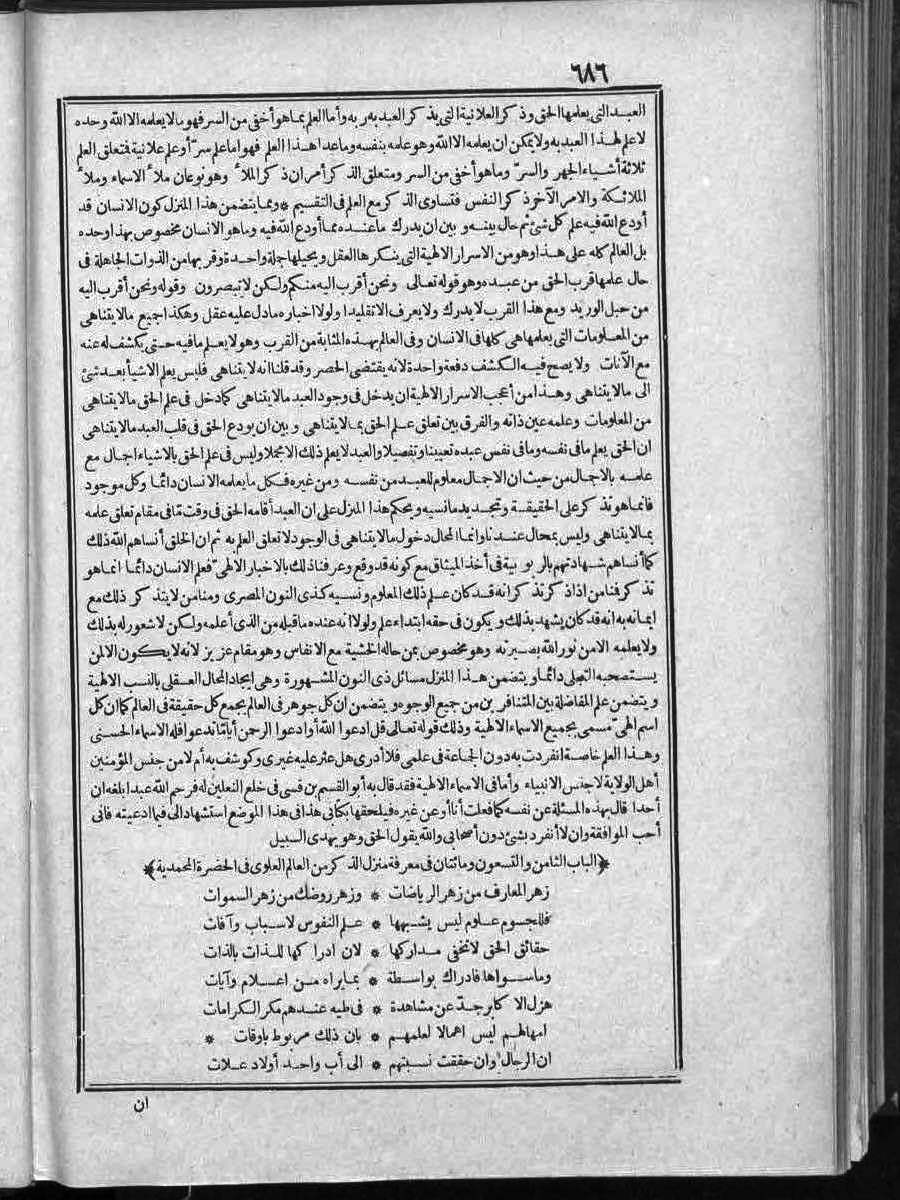 ٦٨٦
العبد التي يعلمها الحق وذكر العلانية التي يذكر العبد به ربه وأما العلم بما هو أخفى من السر فهو مالا يعلمه الا الله وحده
لا علم لهذا العبد به ولا يمكن ان يعلمه الا الله وهو علمه بنفسه وماعدا هذا العلم فهو اما علم سر أو علم علانية فتعلق العلم
ثلاثة أشياء الجهر والسر وما هو أخفى من السر ومتعلق الذكر أمران ذكر الملأ وهو نوعان ملأ الاسماء وملأ
الملائكة والامر الآخر ذكر النفس فتساوى الذكر مع العلم في التقسيم * ومما يتضمن هذا المنزل كون الانسان قد
أودع الله فيه علم كل شئ ثم حال بينه و بين ان يدرك ماعنده مما أودع الله فيه وما هو الانسان مخصوص بهذا وحده
بل العالم كله على هذا وهو من الاسرار الالهية التي ينكرها العقل ويحيلها جملة واحدة وقربها من الذوات الجاهلة في
حال علمها قرب الحق من عبده وهو قوله تعالى ونحن أقرب اليه منكم ولكن لا تبصرون وقوله ونحن أقرب اليه
من حبل الوريد ومع هذا القرب لا يدرك ولا يعرف الا تقليدا ولولا اخباره مادل عليه عقل وهكذا جميع مالا يتناهى
من المعلومات التي يعلمها هي كلها في الانسان وفي العالم بهذه المثابة من القرب وهو لا يعلم مافيه حتى يكشف له عنه
مع الآنات ولا يصح فيه الكشف دفعة واحدة لانه يقتضى الحصر وقد قلنا انه لا يتناهى فليس يعلم الا شيأ بعد شئ
الى مالا يتناهى وهذا من أعجب الاسرار الالهية ان يدخل في وجود العبد مالا يتناهى كما دخل في علم الحق مالا يتناهى
من المعلومات وعلمه عين ذاته والفرق بين تعلق علم الحق بما لا يتناهى و بين ان يودع الحق في قلب العبد مالا يتناهى
ان الحق يعلم ما في نفسه وما في نفس عبده تعيينا وتفصيلا والعبد لا يعلم ذلك الا مجملا وليس في علم الحق بالاشياء اجمال مع
علمه بالاجمال من حيث ان الاجمال معلوم للعبد من نفسه ومن غيره فكل ما يعلمه الانسان دائما وكل موجود
فانما هو تذكر على الحقيقة وتجديد مانسيه ويحكم هذا المنزل على ان العبد أقامه الحق في وقت تما في مقام تعلق علمه
بما لا يتناهى وليس بمحال عندنا وانما المحال دخول مالا يتناهى في الوجود لا تعلق العلم به ثم ان الخلق أنساهم الله ذلك
كما أنساهم شهادتهم بالربوبية في أخذ الميثاق مع كونه قد وقع وعرفنا ذلك بالاخبار الالهى فعلم الانسان دائما انما هو
تذكر فمنا من اذا ذكر تذكر انه قد كان علم ذلك المعلوم ونسيه كذى النون المصرى ومنا من لا يتذكر ذلك مع
ايمانه به انه قد كان يشهد بذلك ويكون في حقه ابتداء علم ولولا انه عنده ما قبله من الذى أعلمه ولكن لا شعور له بذلك
ولا يعلمه الا من نور الله بصيرته وهو مخصوص بمن حاله الخشية مع الانفاس وهو مقام عزيز لانه لا يكون الا لمن
يستصحبه التجلى دائما ويتضمن هذا المنزل مسائل ذى النون المشهورة وهى ايجاد المحال العقلى بالنسب الالهية
ويتضمن علم المفاضلة بين المتنافرين من جميع الوجوه ويتضمن ان كل جوهر في العالم يجمع كل حقيقة في العالم كما ان كل
اسم الهىّ مسمى بجميع الاسماء الالهية وذلك قوله تعالى قل ادعوا الله أو ادعوا الرحمن أياما تدعوا فله الاسماء الحسنى
وهذا العلم خاصة انفردت به دون الجماعة في علمى فلا أدرى هل عثر عليه غيرى وكوشف به أم لا من جنس المؤمنين
أهل الولاية لا جنس الانبياء وأما في الاسماء الالهية فقد قال به أبو القاسم بن قسى في خلع النعلين له فرحم الله عبدا بلغه ان
أحدا قال بهذه المسئلة عن نفسه كما فعلت أنا أو عن غيره فيلحقها بكتابى هذا في هذا الموضع استشهادا لى فيما ادعيته فانى
أحب الموافقة وان لا أنفرد بشئ دون أصحابى والله يقول الحق وهو يهدى السبيل
﴿الباب الثامن والتسعون ومائتان في معرفة منزل الذكر من العالم العلوى في الحضرة المحمدية﴾
زهر المعارف من زهر الرياضات * وزهر روضك من زهر السموات
فللجسوم علوم ليس يشبهها * علم النفوس لاسباب وآفات
حقائق الحق لا تخفى مداركها * لان ادراكها للذات بالذات
وما سواها فادراك بواسطة * بما يراه من اعلام وآيات
هزل الاكابر جدّ عن مشاهدة * في طيه عندهم مكر الكرامات
امهالهم ليس اهمالا لعلمهم * بان ذلك مربوط باوقات *
ان الرجال وان حققت نسبتهم * الى أب واحد أولاد علات
ان